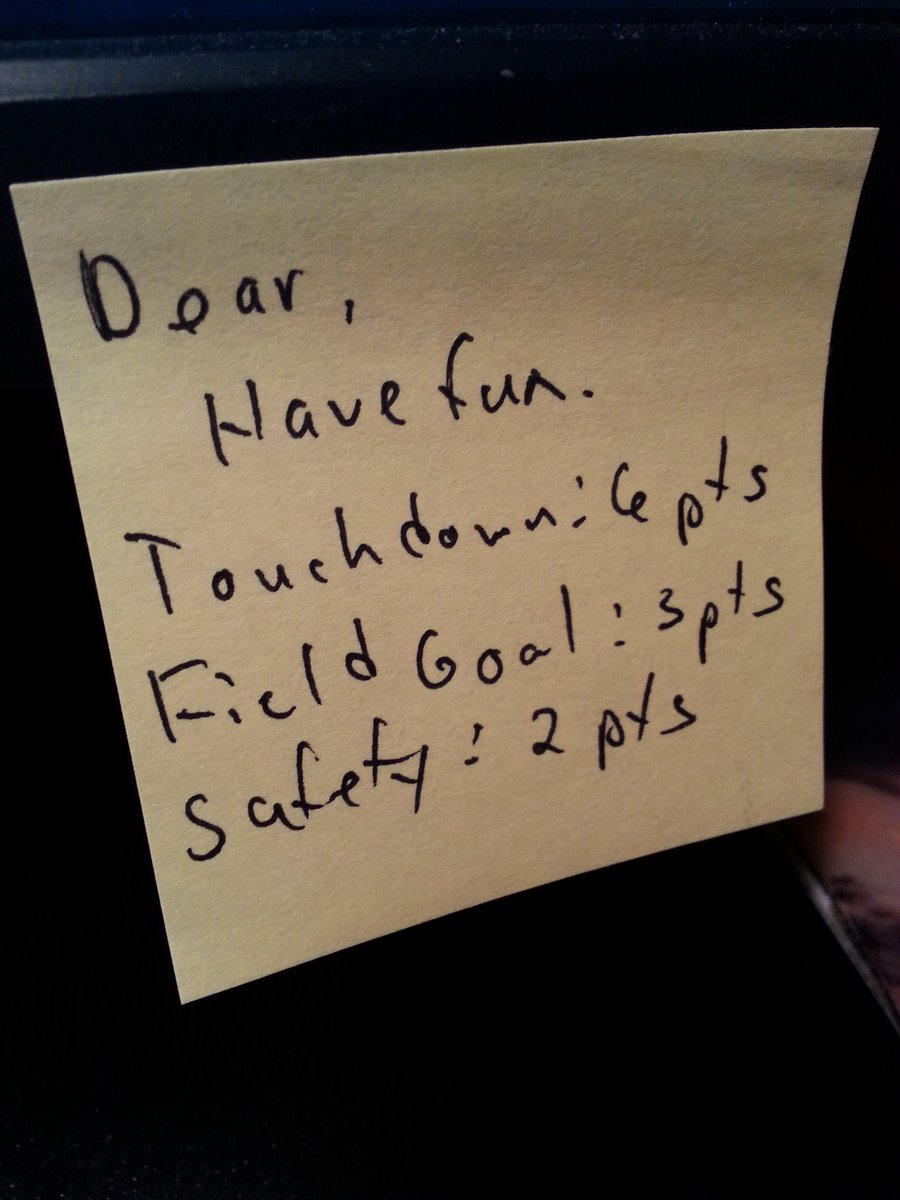 Dear,
Have fun.
Touchdown: 6 pts
Field Goal: 3pts
Safety: 2 pts